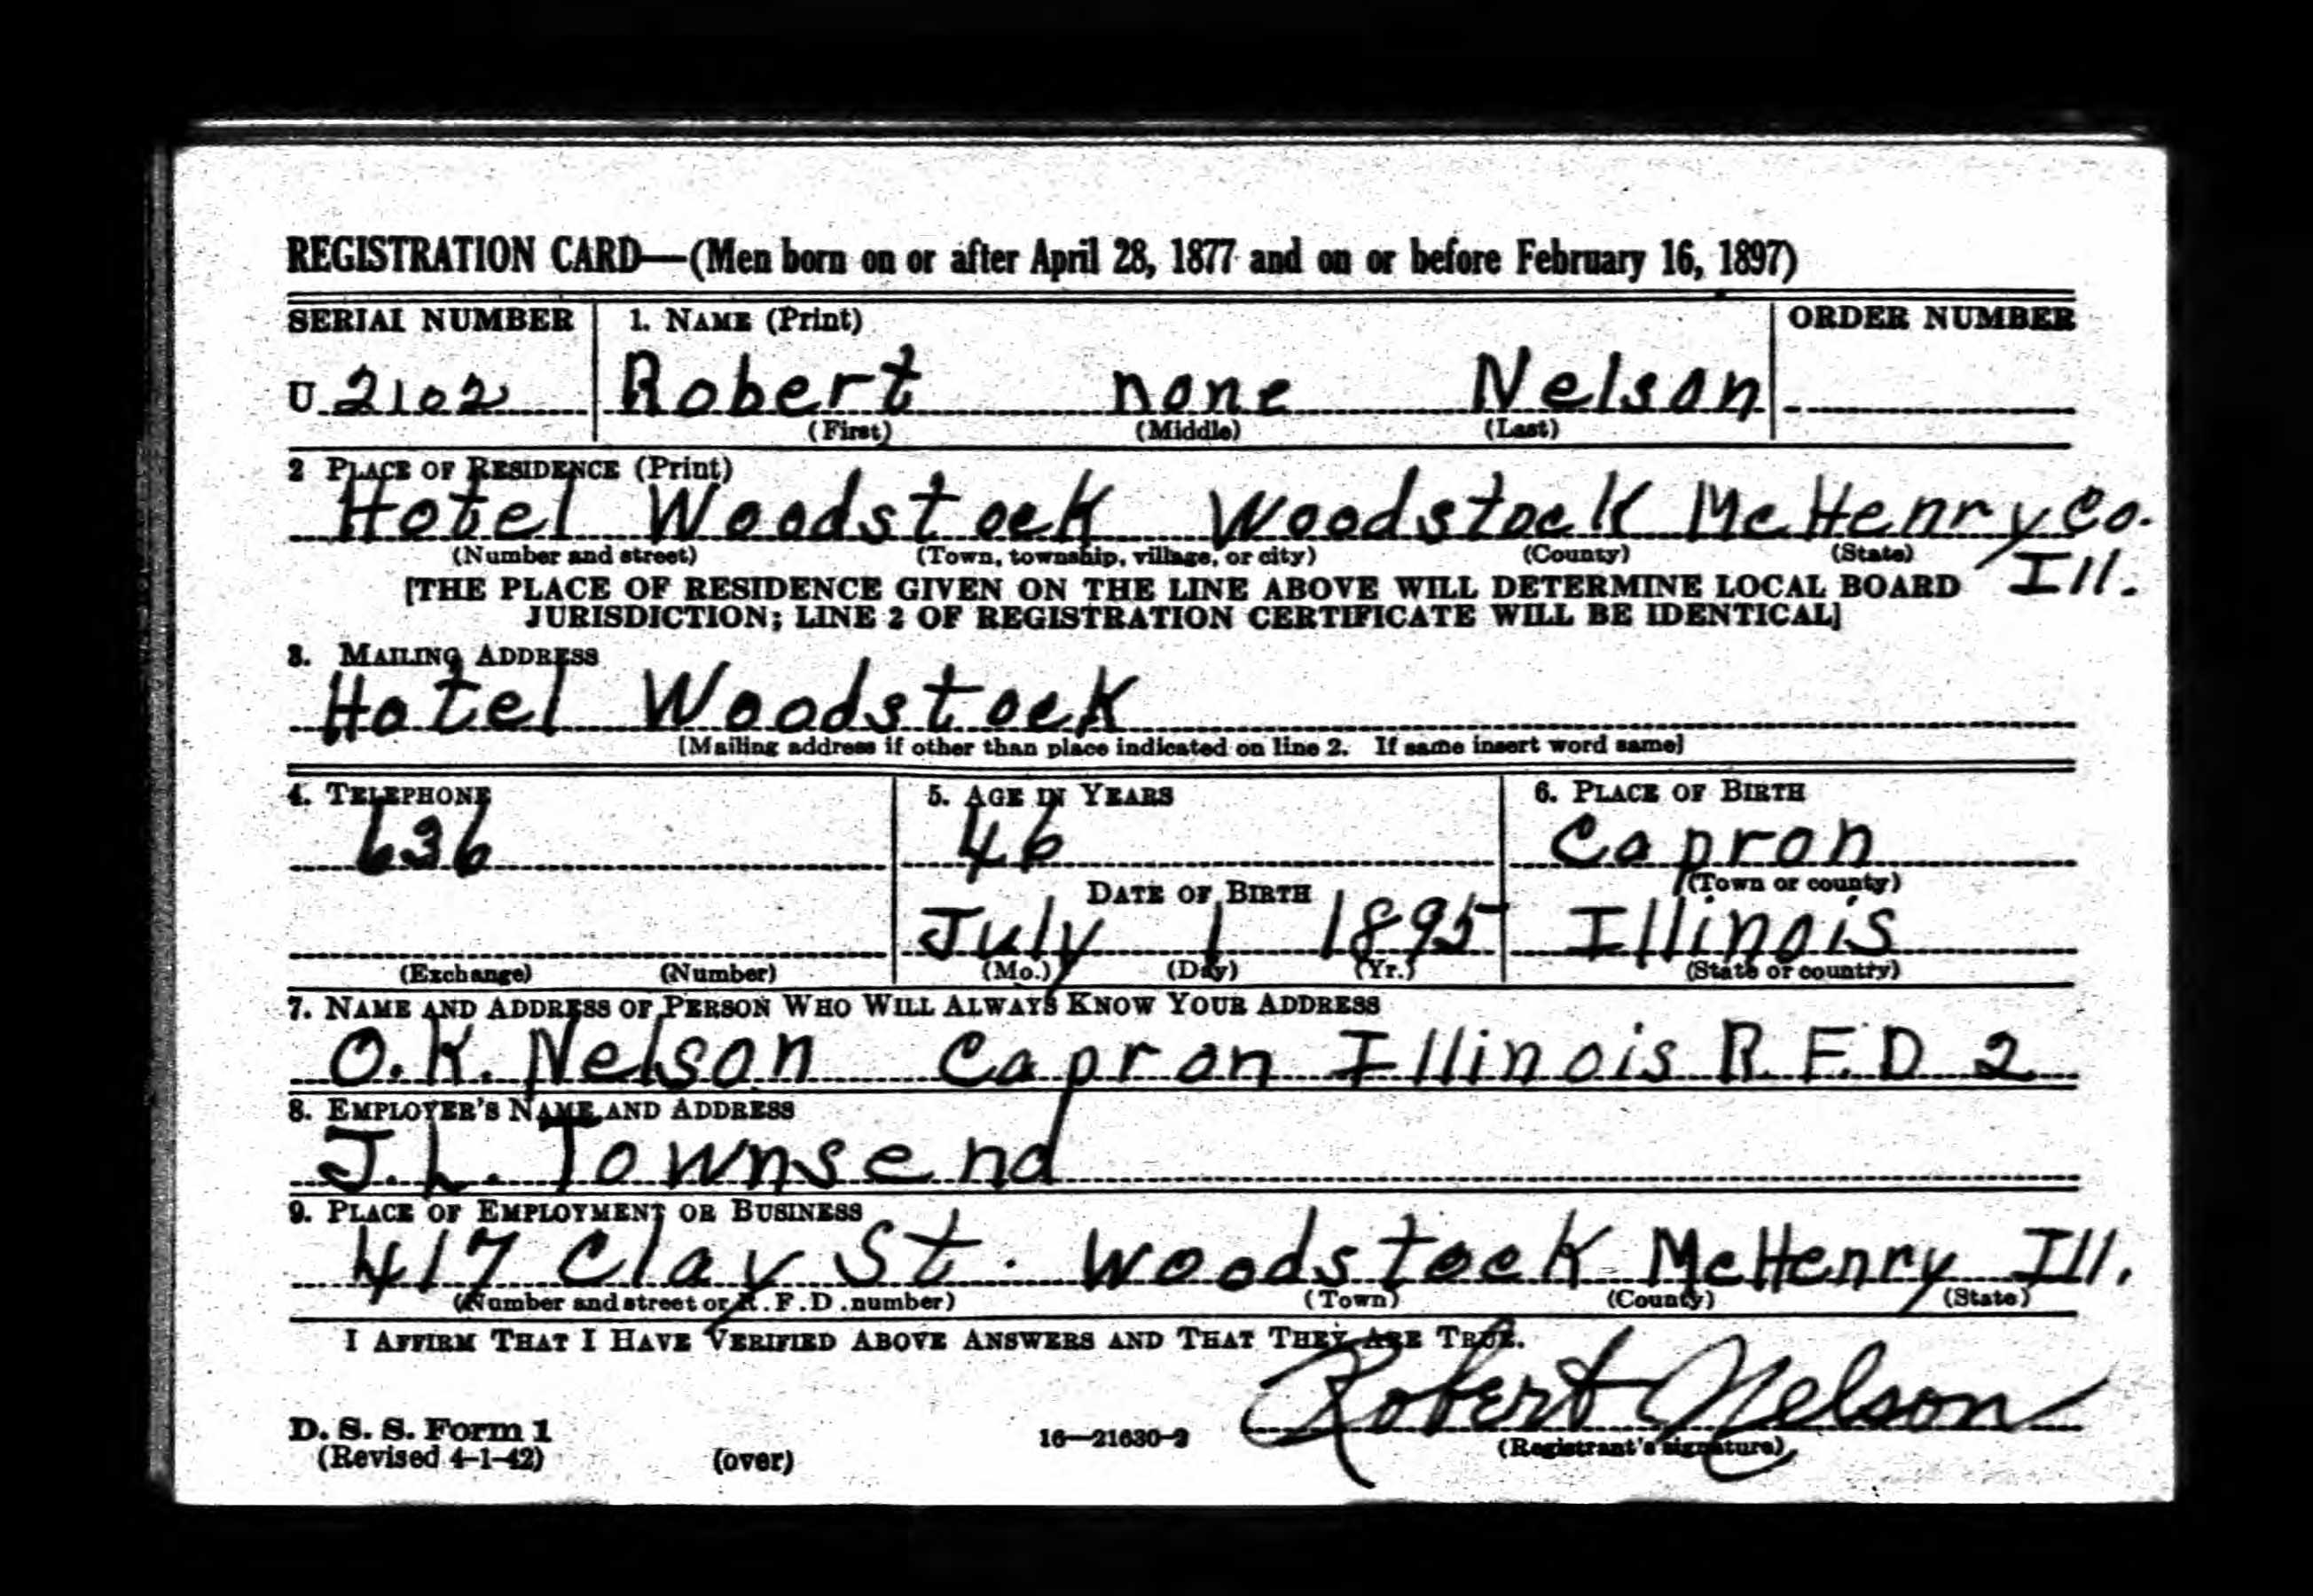 REGISTRATION CARD—(Men born on or after April 28, 1877 and on or before February 16, 1897)
SERIAL NUMBER 1. NAME (Print) ORDER NUMBER
U 2102 Robert none Nelson
(First) (Middle) (Last)
2 PLACE OF RESIDENCE (Print)
Hotel Woodstock Woodstock McHenry Co.
(Number and street) (Town, township, village, or city) (County) (State)
Ill.
[THE PLACE OF RESIDENCE GIVEN ON THE LINE ABOVE WILL DETERMINE LOCAL BOARD
JURISDICTION; LINE 2 OF REGISTRATION CERTIFICATE WILL BE IDENTICAL]
3. MAILING ADDRESS
Hotel Woodstock
[Mailing address if other than place indicated on line 2. If same insert word same]
4. TELEPHONE 5. AGE IN YEARS 6. PLACE OF BIRTH
636 46 Capron
DATE OF BIRTH (Town or county)
July 1 1895 Illinois
(Exchange) (Number) (Mo.) (Day) (Yr.) (State or country)
7. NAME AND ADDRESS OF PERSON WHO WILL ALWAYS KNOW YOUR ADDRESS
O.K. Nelson Capron Illinois R.F.D 2
8. EMPLOYER'S NAME AND ADDRESS
J.L. Townsend
9. PLACE OF EMPLOYMENT OR BUSINESS
417 Clay St. Woodstock McHenry Ill.
(Number and street or R.F.D. number) (Town) (County) (State)
I AFFIRM THAT I HAVE VERIFIED ABOVE ANSWERS AND THAT THEY ARE TRUE.
Robert Nelson
D. S. S. Form 1 16—21630-2 (Registrant's signature)
(Revised 4-1-42) (over)